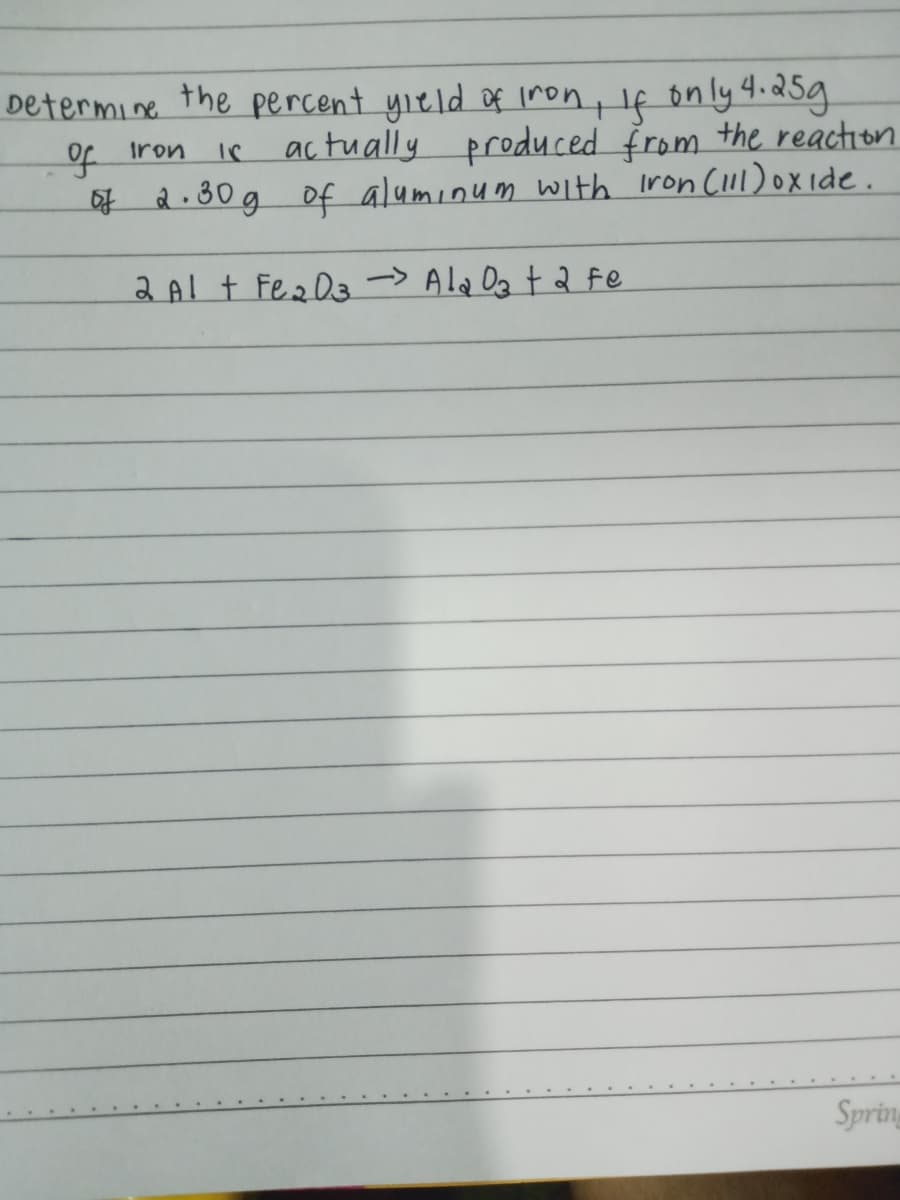 Determine the percent yield of iron, if only 4.25g
of iron is actually produced from the reaction
of 2.30 g of aluminum with iron (III) oxide.
2 Al + Fe2O3 -> Al2O3 + 2 Fe
Sprin